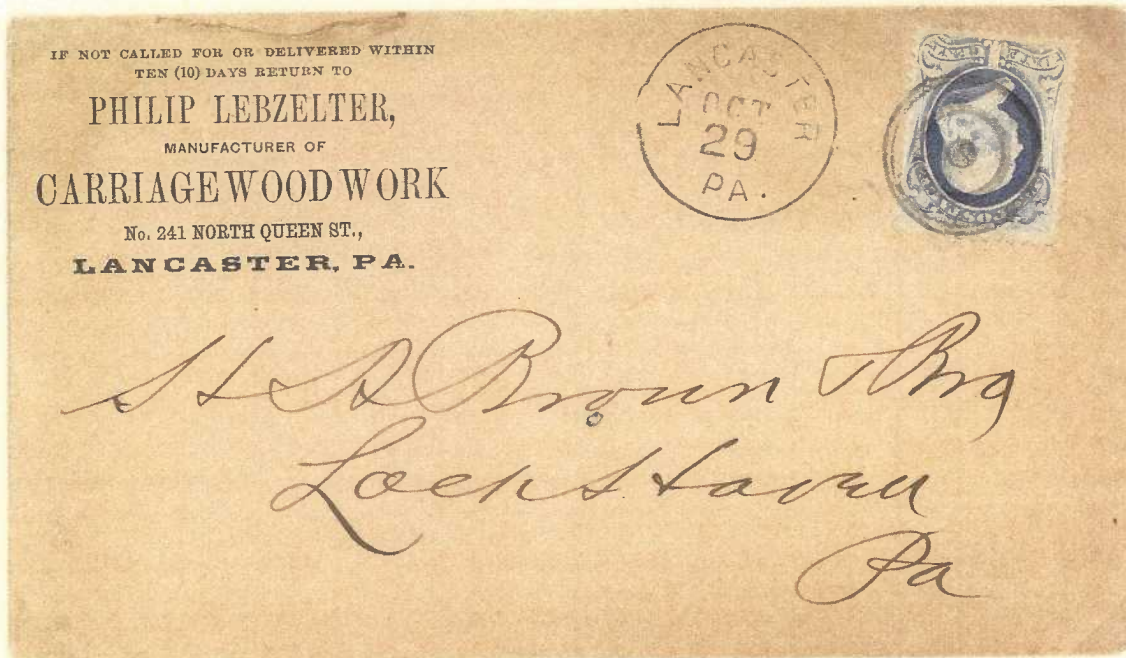 IF NOT CALLED FOR OR DELIVERED WITHIN
TEN (10) DAYS RETURN TO
PHILIP LEBZELTER,
MANUFACTURER OF
CARRIAGE WOOD WORK
No. 241 NORTH QUEEN ST.,
LANCASTER, PA.
LANCASTER
OCT
29
PA.
H A Brown & Bro
Lock Haven
Pa